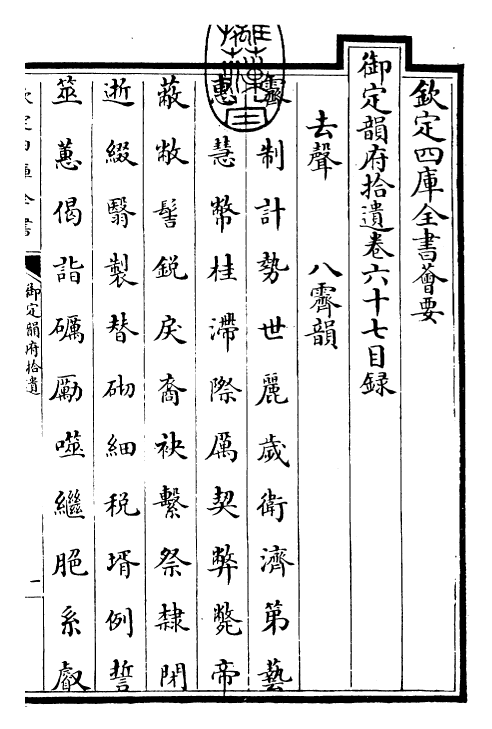 欽定四庫全書薈要
御定韻府拾遺卷六十七目録
去聲　八霽韻
霽制計勢世麗歲衛濟第藝
惠慧幣桂滯際厲契弊斃帝
蔽敝髻鋭戾裔袂繫祭隸閉
逝綴翳製替砌細税壻例誓
筮蕙偈詣礪勵噬繼脆系叡
欽定四庫全書
御定韻府拾遺
一